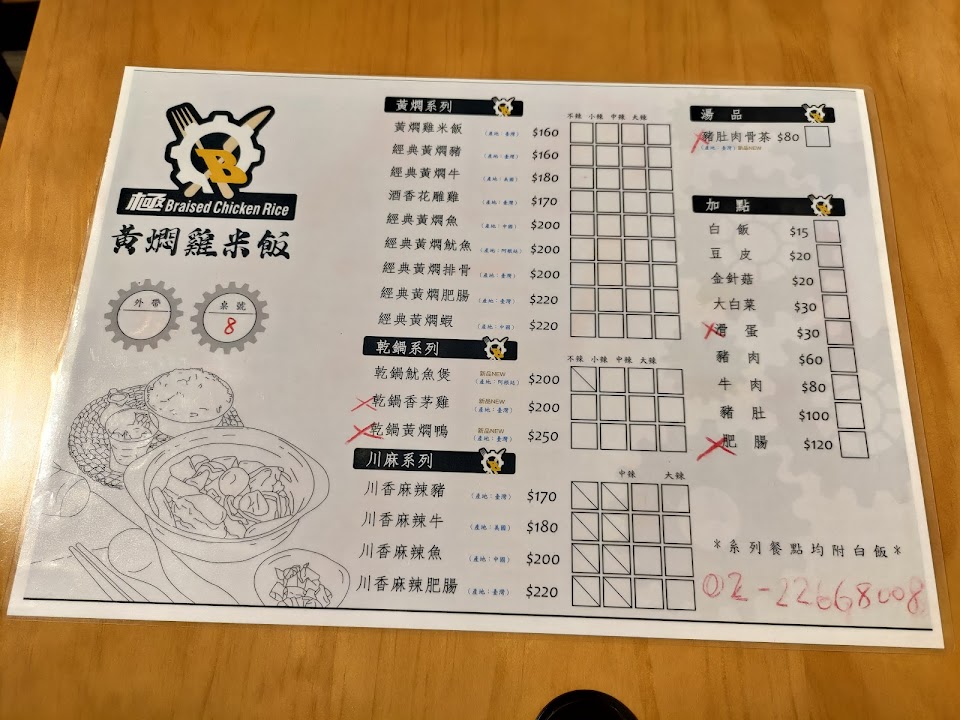 B
極 Braised Chicken Rice
黃燜雞米飯
外帶
桌號
8
黃燜系列
不辣 小辣 中辣 大辣
黃燜雞米飯 (產地:臺灣) $160
經典黃燜豬 (產地:臺灣) $160
經典黃燜牛 (產地:美國) $180
酒香花雕雞 (產地:臺灣) $170
經典黃燜魚 (產地:中國) $200
經典黃燜魷魚 (產地:阿根廷) $200
經典黃燜排骨 (產地:臺灣) $200
經典黃燜肥腸 (產地:臺灣) $220
經典黃燜蝦 (產地:中國) $220
乾鍋系列
不辣 小辣 中辣 大辣
乾鍋魷魚煲 新品NEW (產地:阿根廷) $200
乾鍋香茅雞 新品NEW (產地:臺灣) $200
乾鍋黃燜鴨 新品NEW (產地:臺灣) $250
川麻系列
中辣 大辣
川香麻辣豬 (產地:臺灣) $170
川香麻辣牛 (產地:美國) $180
川香麻辣魚 (產地:中國) $200
川香麻辣肥腸 (產地:臺灣) $220
湯品
豬肚肉骨茶 $80
(產地:臺灣) 新品NEW
加點
白飯 $15
豆皮 $20
金針菇 $20
大白菜 $30
滑蛋 $30
豬肉 $60
牛肉 $80
豬肚 $100
肥腸 $120
*系列餐點均附白飯*
02-22668008